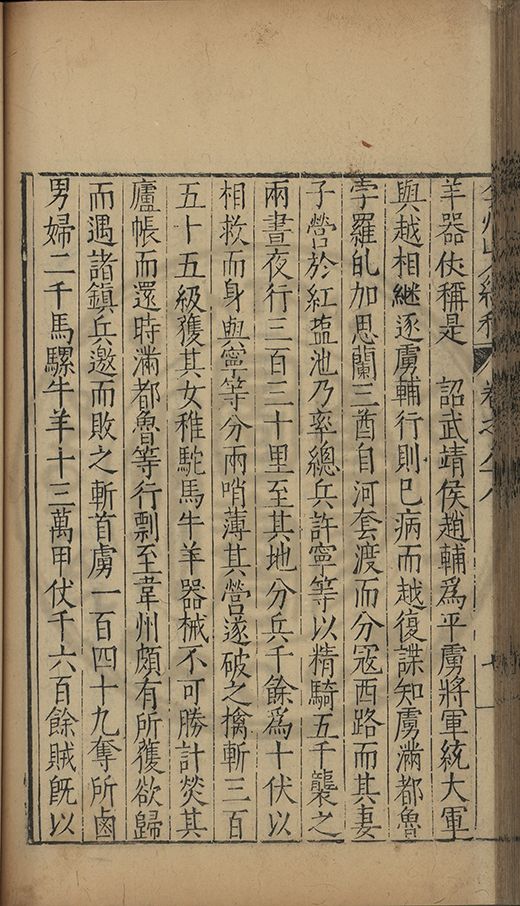 羊器仗稱是　詔武靖侯趙輔爲平虜將軍統大軍
與越相繼逐虜輔行則已病而越復諜知虜滿都魯
孛羅乩加思蘭三酋自河套渡而分寇西路而其妻
子營於紅塩池乃率總兵許寧等以精騎五千襲之
兩晝夜行三百三十里至其地分兵千餘爲十伏以
相救而身與寧等分兩哨薄其營遂破之擒斬三百
五十五級獲其女稚駝馬牛羊器械不可勝計焚其
廬帳而還時滿都魯等行剽至韋州頗有所獲欲歸
而遇諸鎮兵邀而敗之斬首虜一百四十九奪所鹵
男婦二千馬騾牛羊十三萬甲仗千六百餘賊旣以